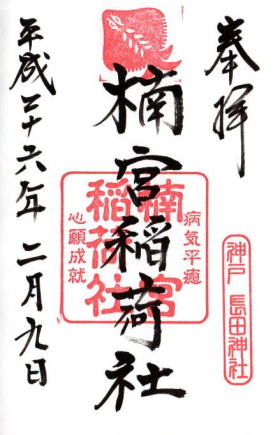 奉拝
楠宮稲荷社
楠宮
稲荷社
病気平癒
心願成就
神戸 長田神社
平成二十六年二月九日